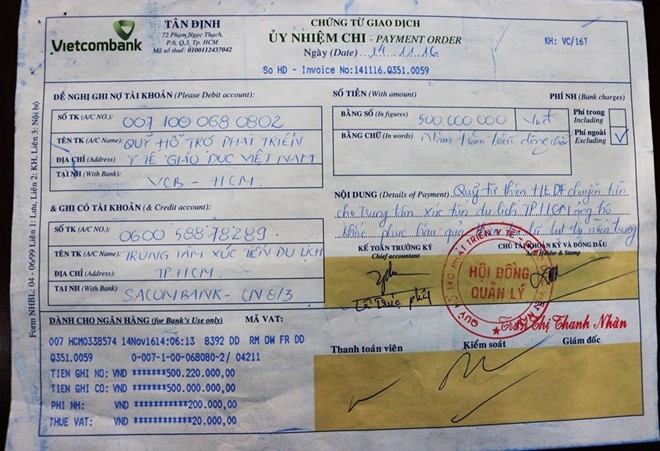 Vietcombank
TÂN ĐỊNH
72 Phạm Ngọc Thạch,
P.6, Q.3, Tp. HCM
Mã số thuế: 0100112437042
CHỨNG TỪ GIAO DỊCH
ỦY NHIỆM CHI - PAYMENT ORDER
Ngày (Date) 14.11.16
KH: VC/16T
So HD - Invoice No:141116.Q351.0059
ĐỀ NGHỊ GHI NỢ TÀI KHOẢN (Please Debit account):
SỐ TK (A/C NO.): 007 100 068 0802
TÊN TK (A/C Name): QUỸ HỖ TRỢ PHÁT TRIỂN
ĐỊA CHỈ (Address) Y TẾ GIÁO DỤC VIỆT NAM
TẠI NH (With Bank): VCB - HCM
& GHI CÓ TÀI KHOẢN (& Credit account):
SỐ TK (A/C NO.): 0600 588 78289
TÊN TK (A/C Name): TRUNG TÂM XÚC TIẾN DU LỊCH
ĐỊA CHỈ (Address): TP.HCM
TẠI NH (With Bank) SACOMBANK - CN 8/3
SỐ TIỀN (With amount)
BẰNG SỐ (In figures) 500 000 000 Vnđ
BẰNG CHỮ (In words) Năm trăm triệu đồng chẵn
PHÍ NH (Bank charges)
Phí trong
Including
Phí ngoài
Excluding
NỘI DUNG (Details of Payment) Quỹ từ thiện chuyển tiền
cho Trung tâm xúc tiến du lịch TP HCM ủng hộ
khắc phục hậu quả lũ lụt miền trung
KẾ TOÁN TRƯỞNG KÝ
Chief accountant
CHỦ TÀI KHOẢN KÝ VÀ ĐÓNG DẤU
Holder & Stamp
HỘI ĐỒNG
QUẢN LÝ
Trần Thị Thanh Nhàn
DÀNH CHO NGÂN HÀNG (for Bank's Use only) MÃ VAT:
007 HCM0338574 14Nov1614:06:13 8392 DD RM OW FR DD
Q351.0059 0-007-1-00-068080-2/ 04211
TIEN GHI NO: VND *******500.220.000,00
TIEN GHI CO: VND *******500.000.000,00
PHI NH: VND *******200.000,00
THUE VAT: VND *******20.000,00
Thanh toán viên
Kiểm soát
Giám đốc
Form NHBL: 04 - 06/99 Liên 1: Lưu, Liên 2: KH, Liên 3: Nội bộ)